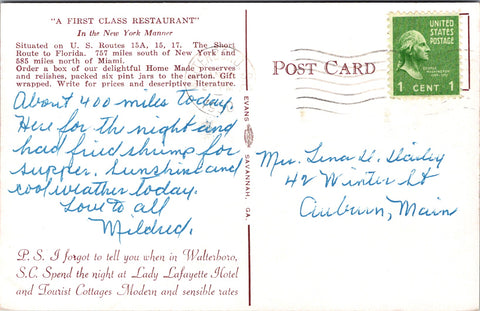 "A FIRST CLASS RESTAURANT"
In the New York Manner
Situated on U. S. Routes 15A, 15, 17. The Short
Route to Florida. 757 miles south of New York and
585 miles north of Miami.
Order a box of our delightful Home Made preserves
and relishes, packed six pint jars to the carton. Gift
wrapped. Write for prices and descriptive literature.
About 400 miles today.
Here for the night and
had fried shrimp for
supper. Sunshine and
cool weather today.
Love to all
Mildred.
P. S. I forgot to tell you when in Walterboro,
S.C. Spend the night at Lady Lafayette Hotel
and Tourist Cottages Modern and sensible rates
EVANS SAVANNAH, GA.
POST CARD
UNITED
STATES
POSTAGE
GEORGE
WASHINGTON
1 CENT 1
Mrs. Lena H.
42 Winter St
Auburn, Main